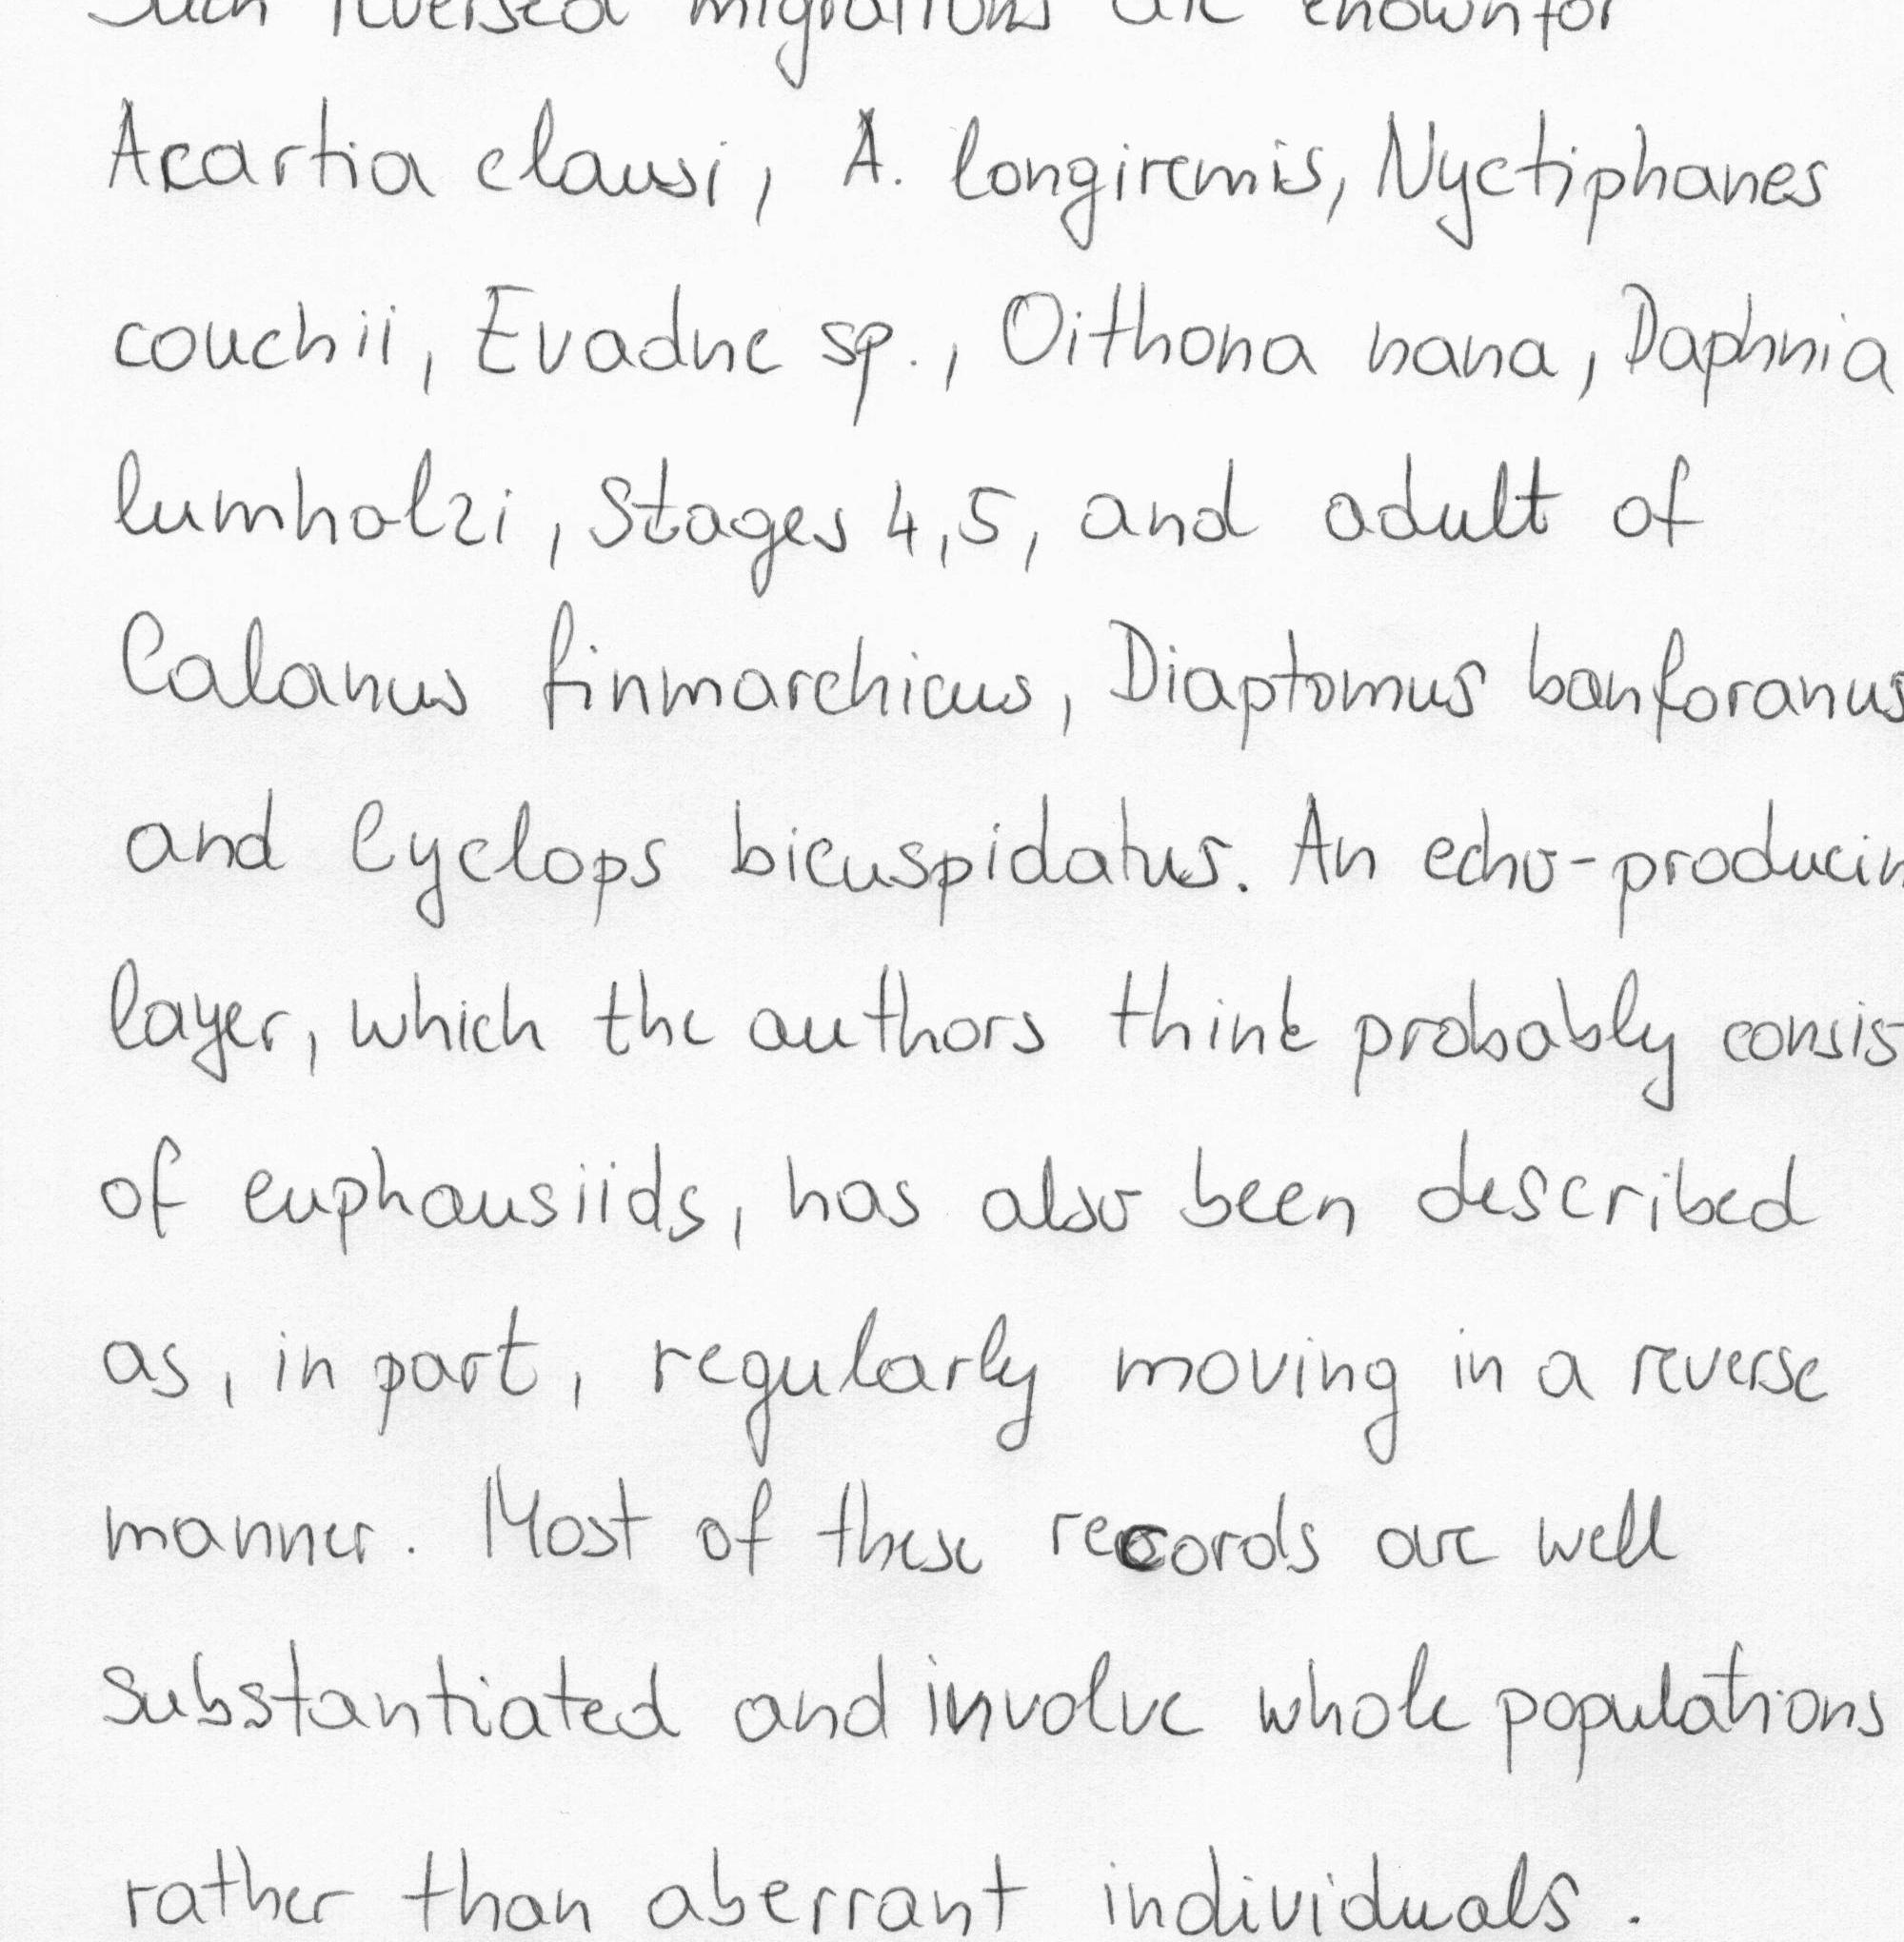 Such reversed migrations are known for
Acartia clausi, A. longiremis, Nyctiphanes
couchii, Evadne sp., Oithona nana, Daphnia
lumholzi, Stages 4,5, and adult of
Calanus finmarchicus, Diaptomus banforanus
and Cyclops bicuspidatus. An echo-producin
layer, which the authors think probably consis
of euphausiids, has also been described
as, in part, regularly moving in a reverse
manner. Most of these records are well
substantiated and involve whole populations
rather than aberrant individuals.